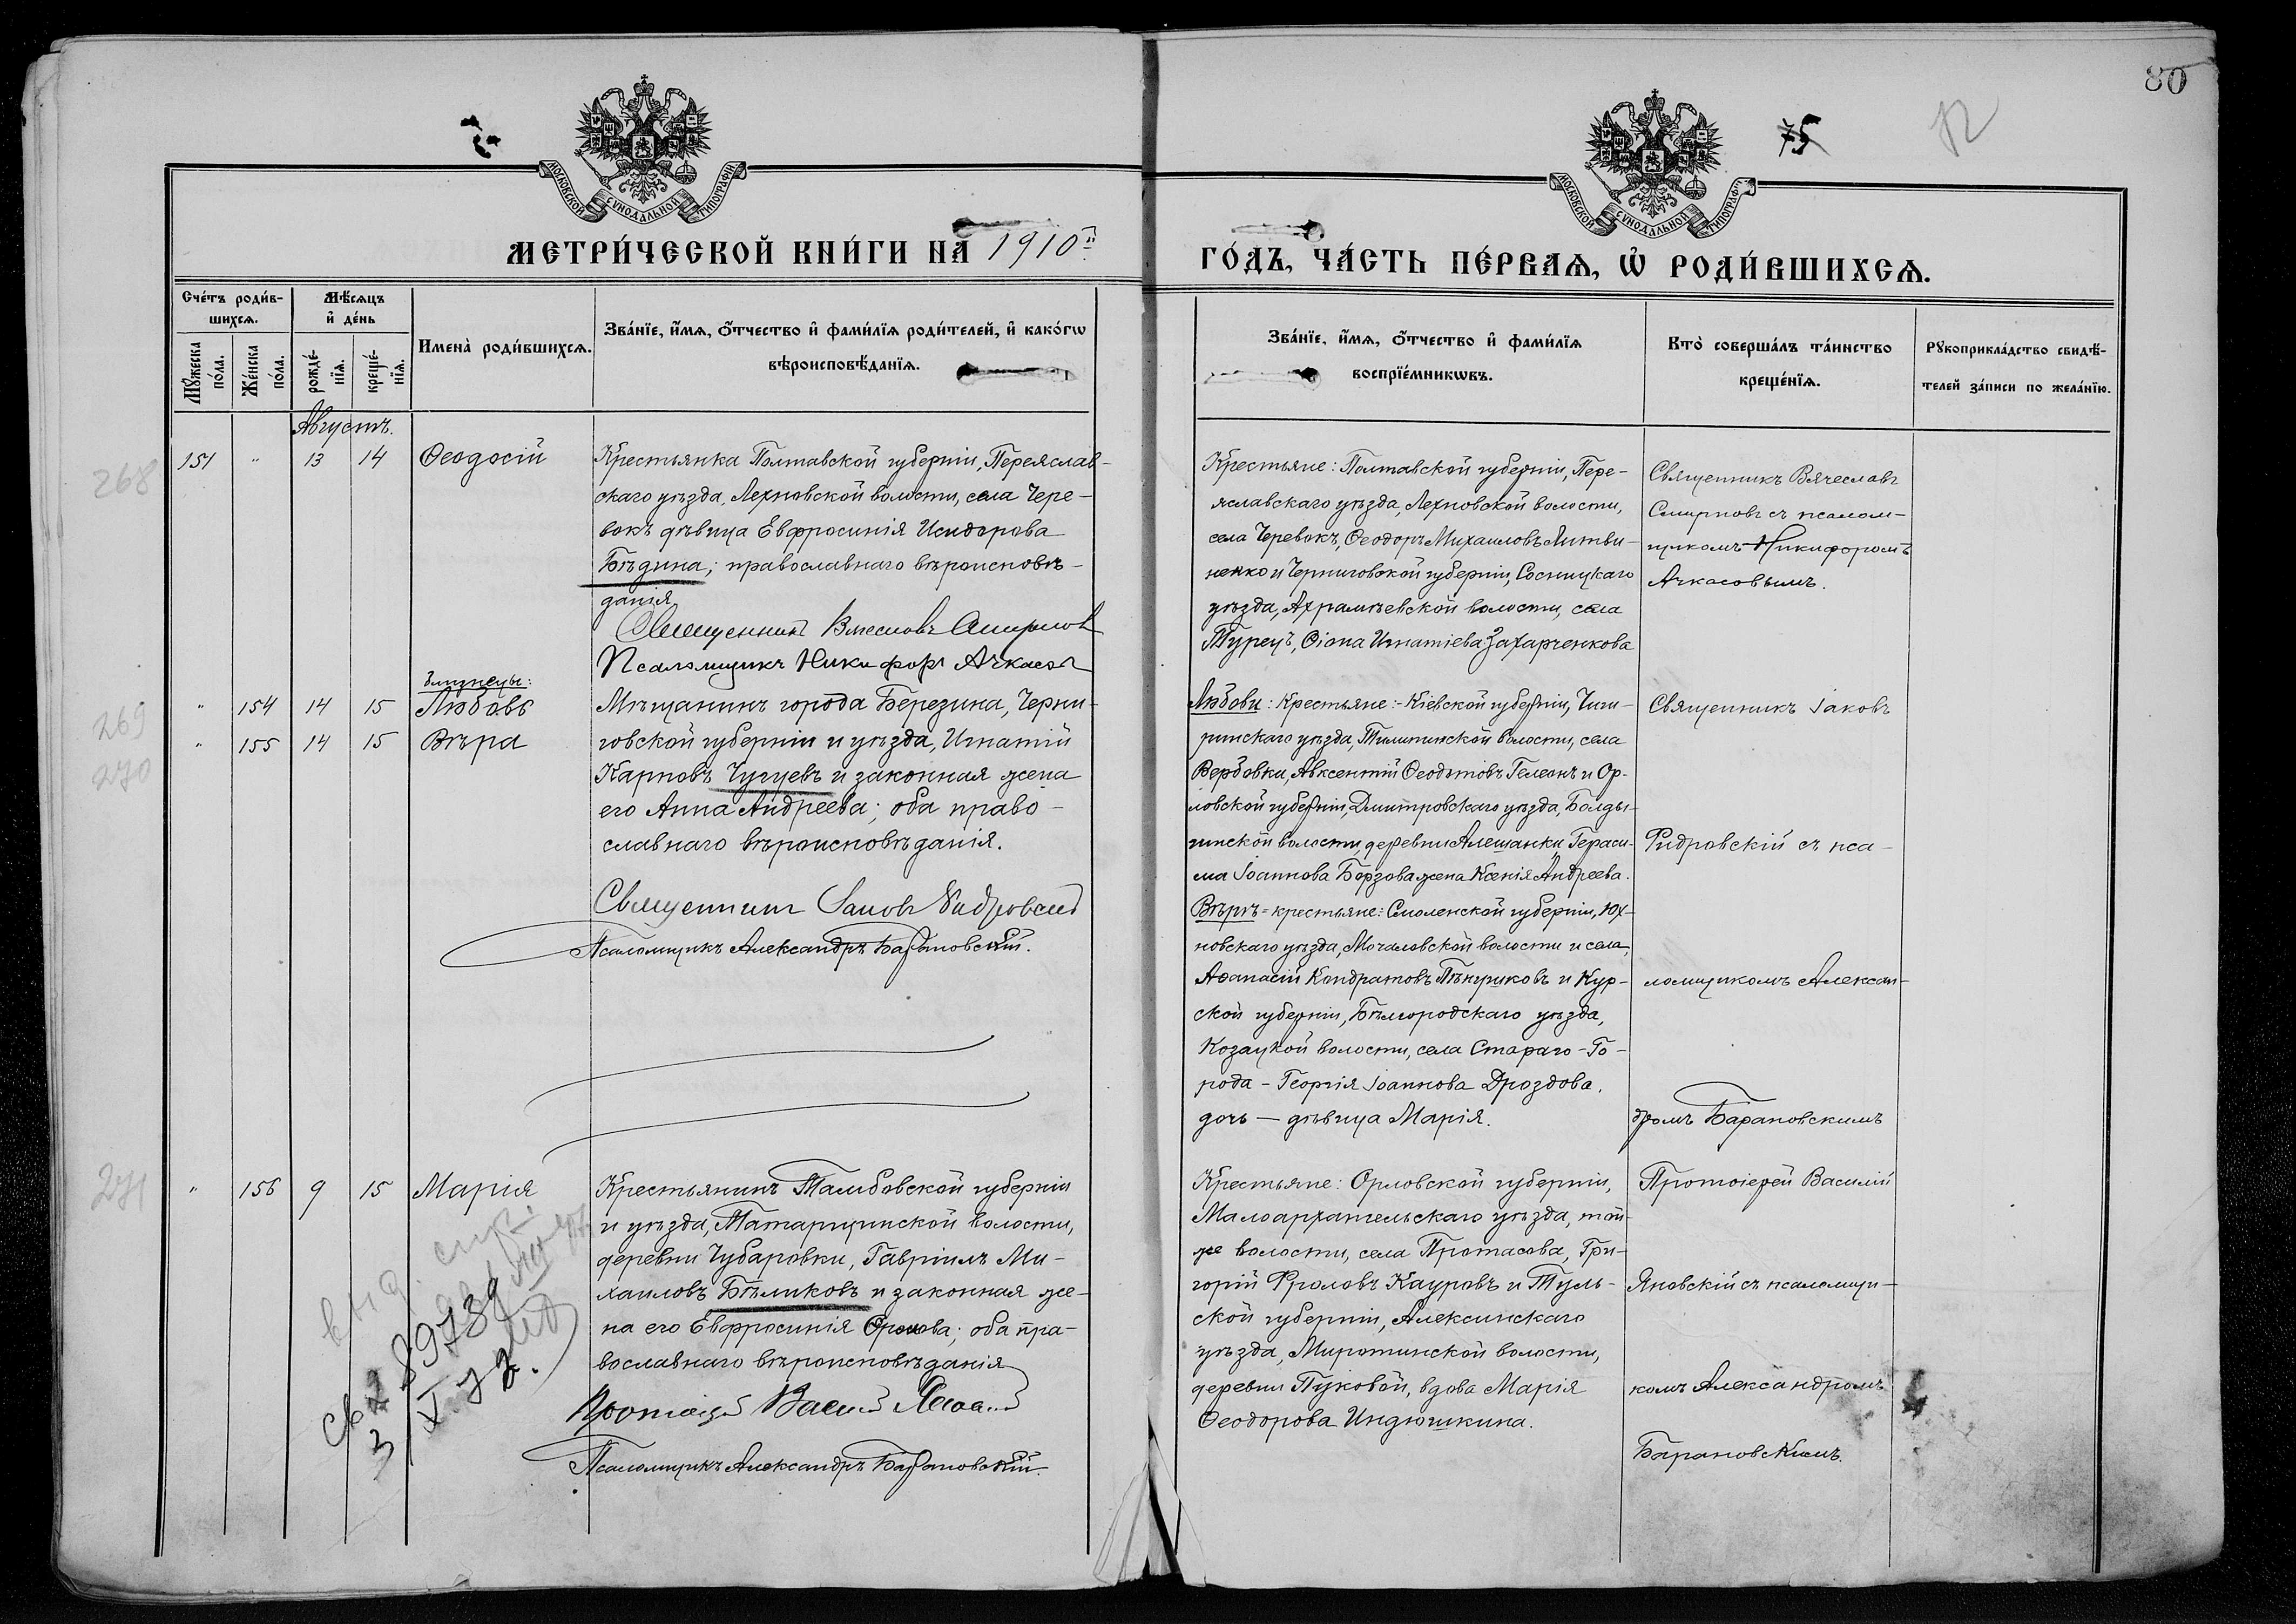 80
75
МОСКОВСКОЙ СУНОДАЛЬНОЙ ТИПОГРАФІИ
МОСКОВСКОЙ СУНОДАЛЬНОЙ ТИПОГРАФІИ
МЕТРИ́ЧЕСКОЙ КНИ́ГИ НА 1910й
ГО́ДЪ, ЧА́СТЬ ПЕ́РВАѦ, Ѡ РОДИ́ВШИХСѦ.
Сче́тъ роди́в-
шихсѧ.
Мѣ́сѧцъ
и де́нь
Мꙋ́жеска
по́ла.
Же́нска
по́ла.
рожде́-
нїѧ.
креще́-
нїѧ.
Имена̀ роди́вшихсѧ.
Зва́нїе, и́мѧ, о́тчество и фами́лїѧ роди́телей, и како́гѡ
вѣроисповѣ́данїѧ.
Зва́нїе, и́мѧ, о́тчество и фами́лїѧ
воспрїе́мникѡвъ.
Кто̀ соверша́лъ та́инство
креще́нїѧ.
Рꙋкоприкла́дство свидѣ́-
телей за́писи по жела́нїю.
Августъ.
268
151 " 13 14 Ѳеодосій
Крестьянка Полтавской губерніи, Переяслав-
скаго уѣзда, Лехновской волости, села Чере-
вокъ дѣвица Евфросинія Исидорова
Бѣдина; православнаго вѣроисповѣ-
данія
Священникъ Вячеславъ Смирновъ
Псаломщикъ Никифоръ Ачкасовъ
Крестьяне: Полтавской губерніи, Пере-
яславскаго уѣзда, Лехновской волости,
села Черевокъ, Ѳеодоръ Михаиловъ Литви-
ненко и Черниговской губерніи, Сосницкаго
уѣзда, Ахрамѣевской волости, села
Турецъ, Ѳіона Игнатіева Захарченкова
Священникъ Вячеславъ
Смирновъ съ псалом-
щикомъ Никифоромъ
Ачкасовымъ.
близнецы:
269
" 154 14 15 Любовь
270
" 155 14 15 Вѣра
Мѣщанинъ города Березина, Черни-
говской губерніи и уѣзда, Игнатій
Карповъ Чугуевъ и законная жена
его Анна Андреева; оба право-
славнаго вѣроисповѣданія.
Священникъ Іаковъ Фидровскій
Псаломщикъ Александръ Барановскій.
Любови: Крестьяне:- Кіевской губерніи, Чиги-
ринскаго уѣзда, Телепинской волости, села
Вербовки, Авксентій Ѳеодотовъ Гелеонъ и Ор-
ловской губерніи, Дмитровскаго уѣзда, Болды-
гинской волости, деревни Алешанки, Гераси-
ма Іоаннова Борзова жена Ксенія Андреева.
Вѣрѣ = крестьяне: Смоленской губерніи, Юх-
новскаго уѣзда, Мочаловской волости и села,
Аѳанасій Кондратовъ Пѣнушковъ и Кур-
ской губерніи, Бѣлгородскаго уѣзда,
Козацкой волости, села Стараго-Го-
рода - Георгія Іоаннова Дроздова.
дочь — дѣвица Марія.
Священникъ Іаковъ
Фидровскій съ пса-
ломщикомъ Алексан-
дромъ Барановскимъ
271
" 156 9 15 Марія
Крестьянинъ Тамбовской губерніи
и уѣзда, Татарщинской волости,
деревни Чубаровки, Гавріилъ Ми-
хаиловъ Бѣликовъ и законная же-
на его Евфросинія Фролова; оба пра-
вославнаго вѣроисповѣданія
Протоіерей Василій Яновскій
Псаломщикъ Александръ Барановскій.
Крестьяне: Орловской губерніи,
Малоархангельскаго уѣзда, той-
же волости, села Протасова, Гри-
горій Фроловъ Кауровъ и Туль-
ской губерніи, Алексинскаго
уѣзда, Миротинской волости,
деревни Пуковой, вдова Марія
Ѳеодорова Индюшкина.
Протоіерей Василій
Яновскій съ псаломщи-
комъ Александромъ
Барановскимъ.